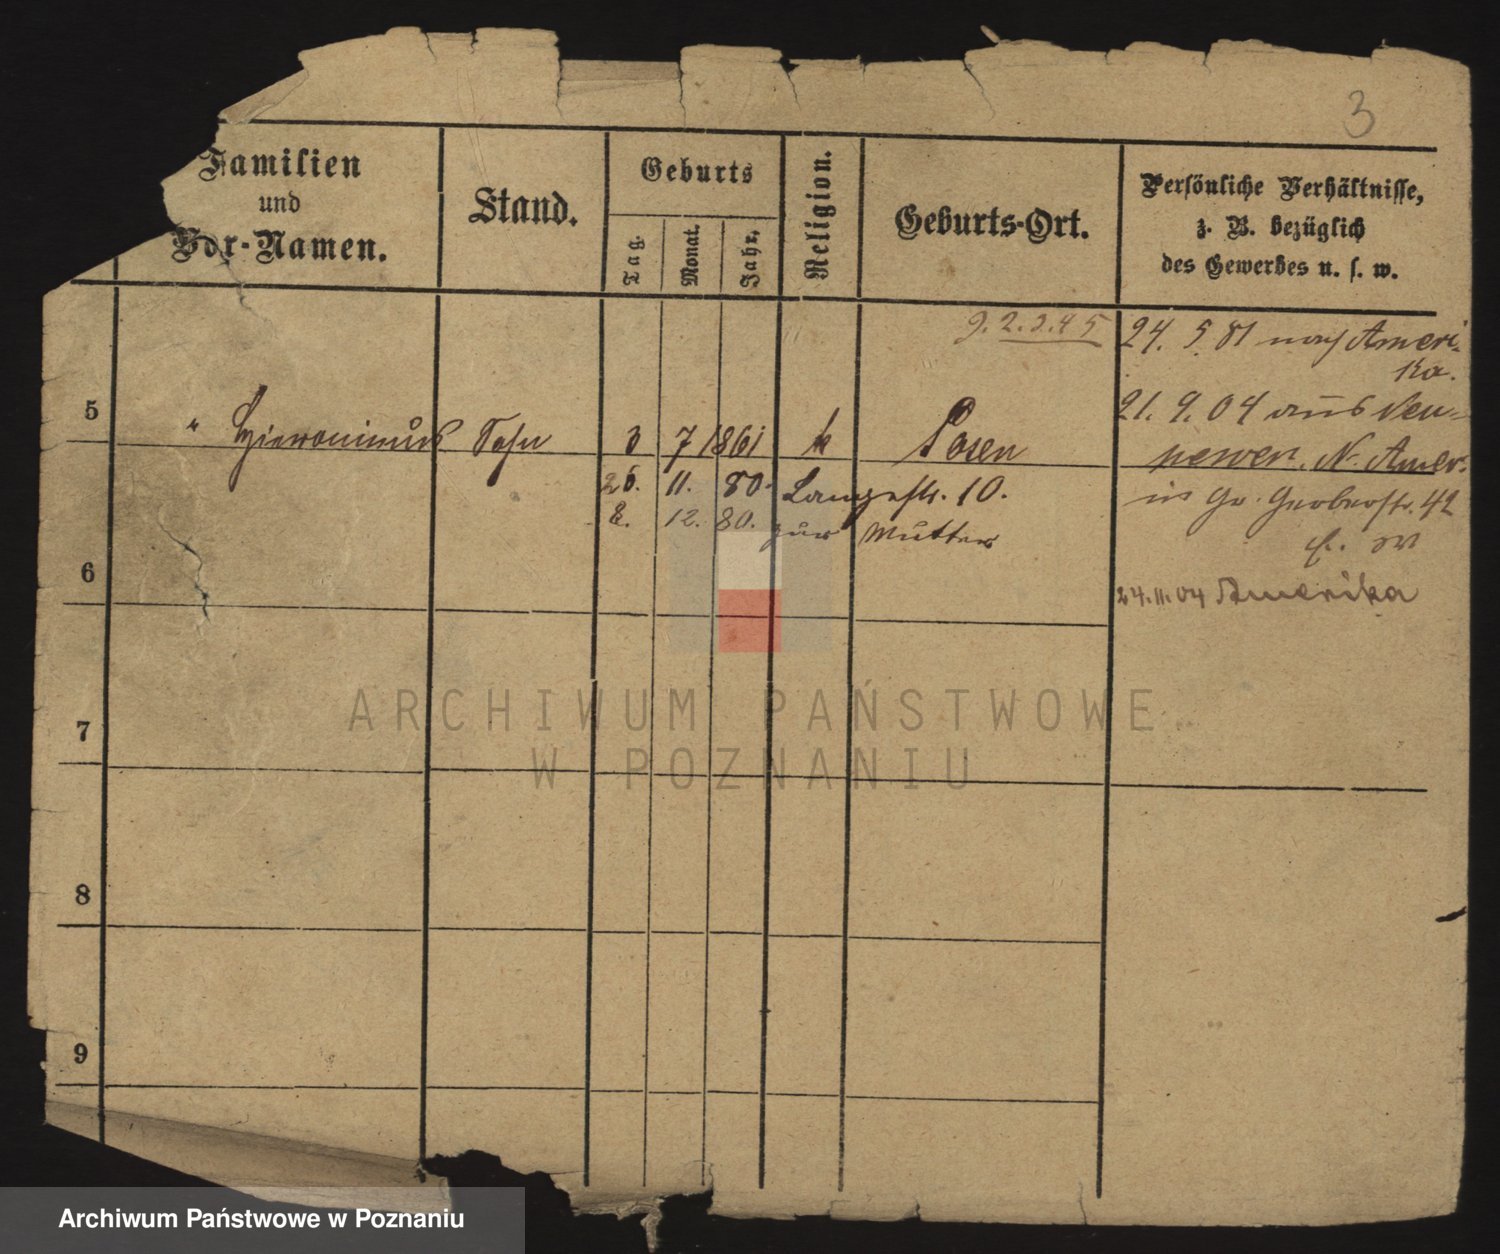 3
Familien
und
Vor-Namen.
Stand.
Geburts
Tag.
Monat.
Jahr.
Religion.
Geburts-Ort.
Persönliche Verhältnisse,
z. B. bezüglich
des Gewerbes u. s. w.
24. 5 81 nach Ameri-
ka.
5 " Hieronimus Sohn 3 7 1861 k Posen
21. 9. 04 aus
N. Amer.
26. 11. 80. Langestr. 10.
in Gr. Gerberstr. 42
8. 12. 80. zur Mutter
6
24.11.04 Amerika
7
8
9
ARCHIWUM PAŃSTWOWE
W POZNANIU
Archiwum Państwowe w Poznaniu